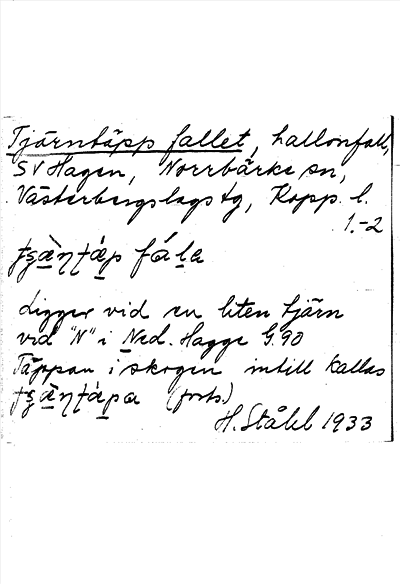 Tjärntäpp fallet, hallonfall,
SV Hagen, Norrbärke sn,
Västerbergslags tg, Kopp. l.
1.-2
fála
Ligger vid en liten tjärn
vid "N" i Ned. Hagge G.90
Täppan i skogen intill kallas
(forts.)
H. Ståhl 1933